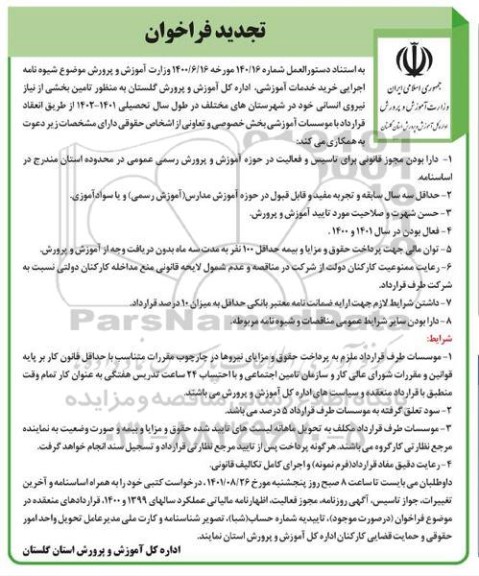 تجدید فراخوان
جمهوری اسلامی ایران
وزارت آموزش و پرورش
اداره کل آموزش و پرورش استان گلستان
به استناد دستورالعمل شماره ۱۴۰/۱۶ مورخه ۱۴۰۰/۶/۱۶ وزارت آموزش و پرورش موضوع شیوه نامه
اجرایی خرید خدمات آموزشی، اداره کل آموزش و پرورش گلستان به منظور تامین بخشی از نیاز
نیروی انسانی خود در شهرستان های مختلف در طول سال تحصیلی ۱۴۰۱-۱۴۰۲ از طریق انعقاد
قرارداد با موسسات آموزشی بخش خصوصی و تعاونی از اشخاص حقوقی دارای مشخصات زیر دعوت
به همکاری می کند:
۱- دارا بودن مجوز قانونی برای تاسیس و فعالیت در حوزه آموزش و پرورش رسمی عمومی در محدوده استان مندرج در
اساسنامه.
۲- حداقل سه سال سابقه و تجربه مفید و قابل قبول در حوزه آموزش مدارس(آموزش رسمی) و یا سوادآموزی.
۳- حسن شهرت و صلاحیت مورد تایید آموزش و پرورش.
۴- فعال بودن در سال ۱۴۰۱ و ۱۴۰۰.
۵- توان مالی جهت پرداخت حقوق و مزایا و بیمه حداقل ۱۰۰ نفر به مدت سه ماه بدون دریافت وجه از آموزش و پرورش.
۶- رعایت ممنوعیت کارکنان دولت از شرکت در مناقصه و عدم شمول لایحه قانونی منع مداخله کارکنان دولتی نسبت به
شرکت طرف قرارداد.
۷- داشتن شرایط لازم جهت ارایه ضمانت نامه معتبر بانکی حداقل به میزان ۱۰ درصد قرارداد.
۸- دارا بودن سایر شرایط عمومی مناقصات و شیوه نامه مربوطه.
شرایط:
۱- موسسات طرف قرارداد ملزم به پرداخت حقوق و مزایای نیروها در چارچوب مقررات متناسب با حداقل قانون کار بر پایه
قوانین و مقررات شورای عالی کار و سازمان تامین اجتماعی و با احتساب ۲۴ ساعت تدریس هفتگی به عنوان کار تمام وقت
منطبق با قرارداد منعقده و سیاست های اداره کل آموزش و پرورش می باشند.
۲- سود تعلق گرفته به موسسات طرف قرارداد ۵ درصد می باشد.
۳- موسسات طرف قرارداد مکلف به تحویل ماهانه لیست های تایید شده حقوق و مزایا و بیمه و صورت وضعیت به نماینده
مرجع نظارتی کارگروه می باشند. هرگونه پرداخت پس از تایید مرجع نظارتی قرارداد و تسجیل سند انجام خواهد گرفت.
۴- رعایت دقیق مفاد قرارداد(فرم نمونه) و اجرای کامل تکالیف قانونی.
داوطلبان می بایست تا ساعت ۸ صبح روز پنجشنبه مورخ ۱۴۰۱/۰۸/۲۶، درخواست کتبی خود را به همراه اساسنامه و آخرین
تغییرات، جواز تاسیس، آگهی روزنامه، مجوز فعالیت، اظهارنامه مالیاتی عملکرد سالهای ۱۳۹۹ و ۱۴۰۰، قراردادهای منعقده در
موضوع فراخوان (درصورت موجود)، تاییدیه شماره حساب(شبا)، تصویر شناسنامه و کارت ملی مدیرعامل تحویل واحد امور
حقوقی و حمایت قضایی کارکنان اداره کل آموزش و پرورش استان نمایند.
اداره کل آموزش و پرورش استان گلستان